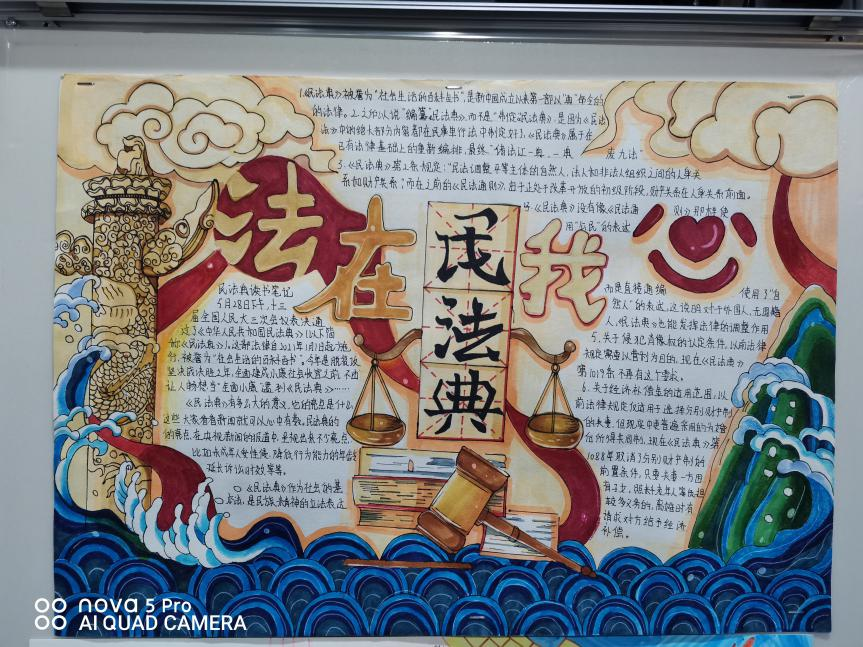 1.《民法典》被誉为“社会生活的百科全书”,是新中国成立以来第一部以“典”命名的
的法律。2.之所以说“编纂”民法典,而不是“制定”民法典,是因为《民法
法》中的绝大部分内容都在民事单行法中制定好了,《民法典》属于在
已有法律基础上的重新编排,最终“诸法让一典,一典 废九法”
3.《民法典》第2条规定:“民法调整平等主体的自然人,法人和非法人组织之间的人身关
系和财产关系”,而在之前的《民法通则》,由于正处于改革开放的初级阶段,财产关系在人身关系前面。
《民法典》没有像《民法通 则》那样使
用“公民”的表达
法在我
民法典
民法典读书笔记
5月28日下午,十三
届全国人民大三次会议表决通
过了《中华人民共和国民法典》(以下简
称《民法典》),这部法律自2021年1月1日起施
行,被誉为“社会生活的百科全书”。今年是脱贫攻
坚决战决胜之年,全面建成小康社会收官之年,不由
让人畅想当“全面小康”遇到《民法典》……
《民法典》有多么大的意义,它的亮点是什么,
这些大家看看新闻就可以心中有数。民法典的
的亮点,在央视新闻的报道中,是视出来不少亮点,
比如未成年人受性侵,降低行为能力的年龄,
延长诉讼时效等等。
《民法典》作为社会的基
本法,是民族精神的立法表达
而是直接通编 使用了“自
然人”的表述,这说明对于外国人,无国籍
人,《民法典》也能发挥法律的调整作用
5.关于侵犯肖像权的认定条件,以前法律
规定需要以营利为目的,现在《民法典》
第1019条不再有这个要求。
6.关于经济补偿金的适用范围,以
前法律规定仅适用于选择分别财产制
的夫妻,但现实中普遍常用的为婚
后所得共同制,现在《民法典》第
1088年取消了分别财产制的
前置条件,只要夫妻一方因
有子女,照料老年人等负担
较多义务的,离婚时有
请求对方给予经济
补偿。
nova 5 Pro
AI QUAD CAMERA